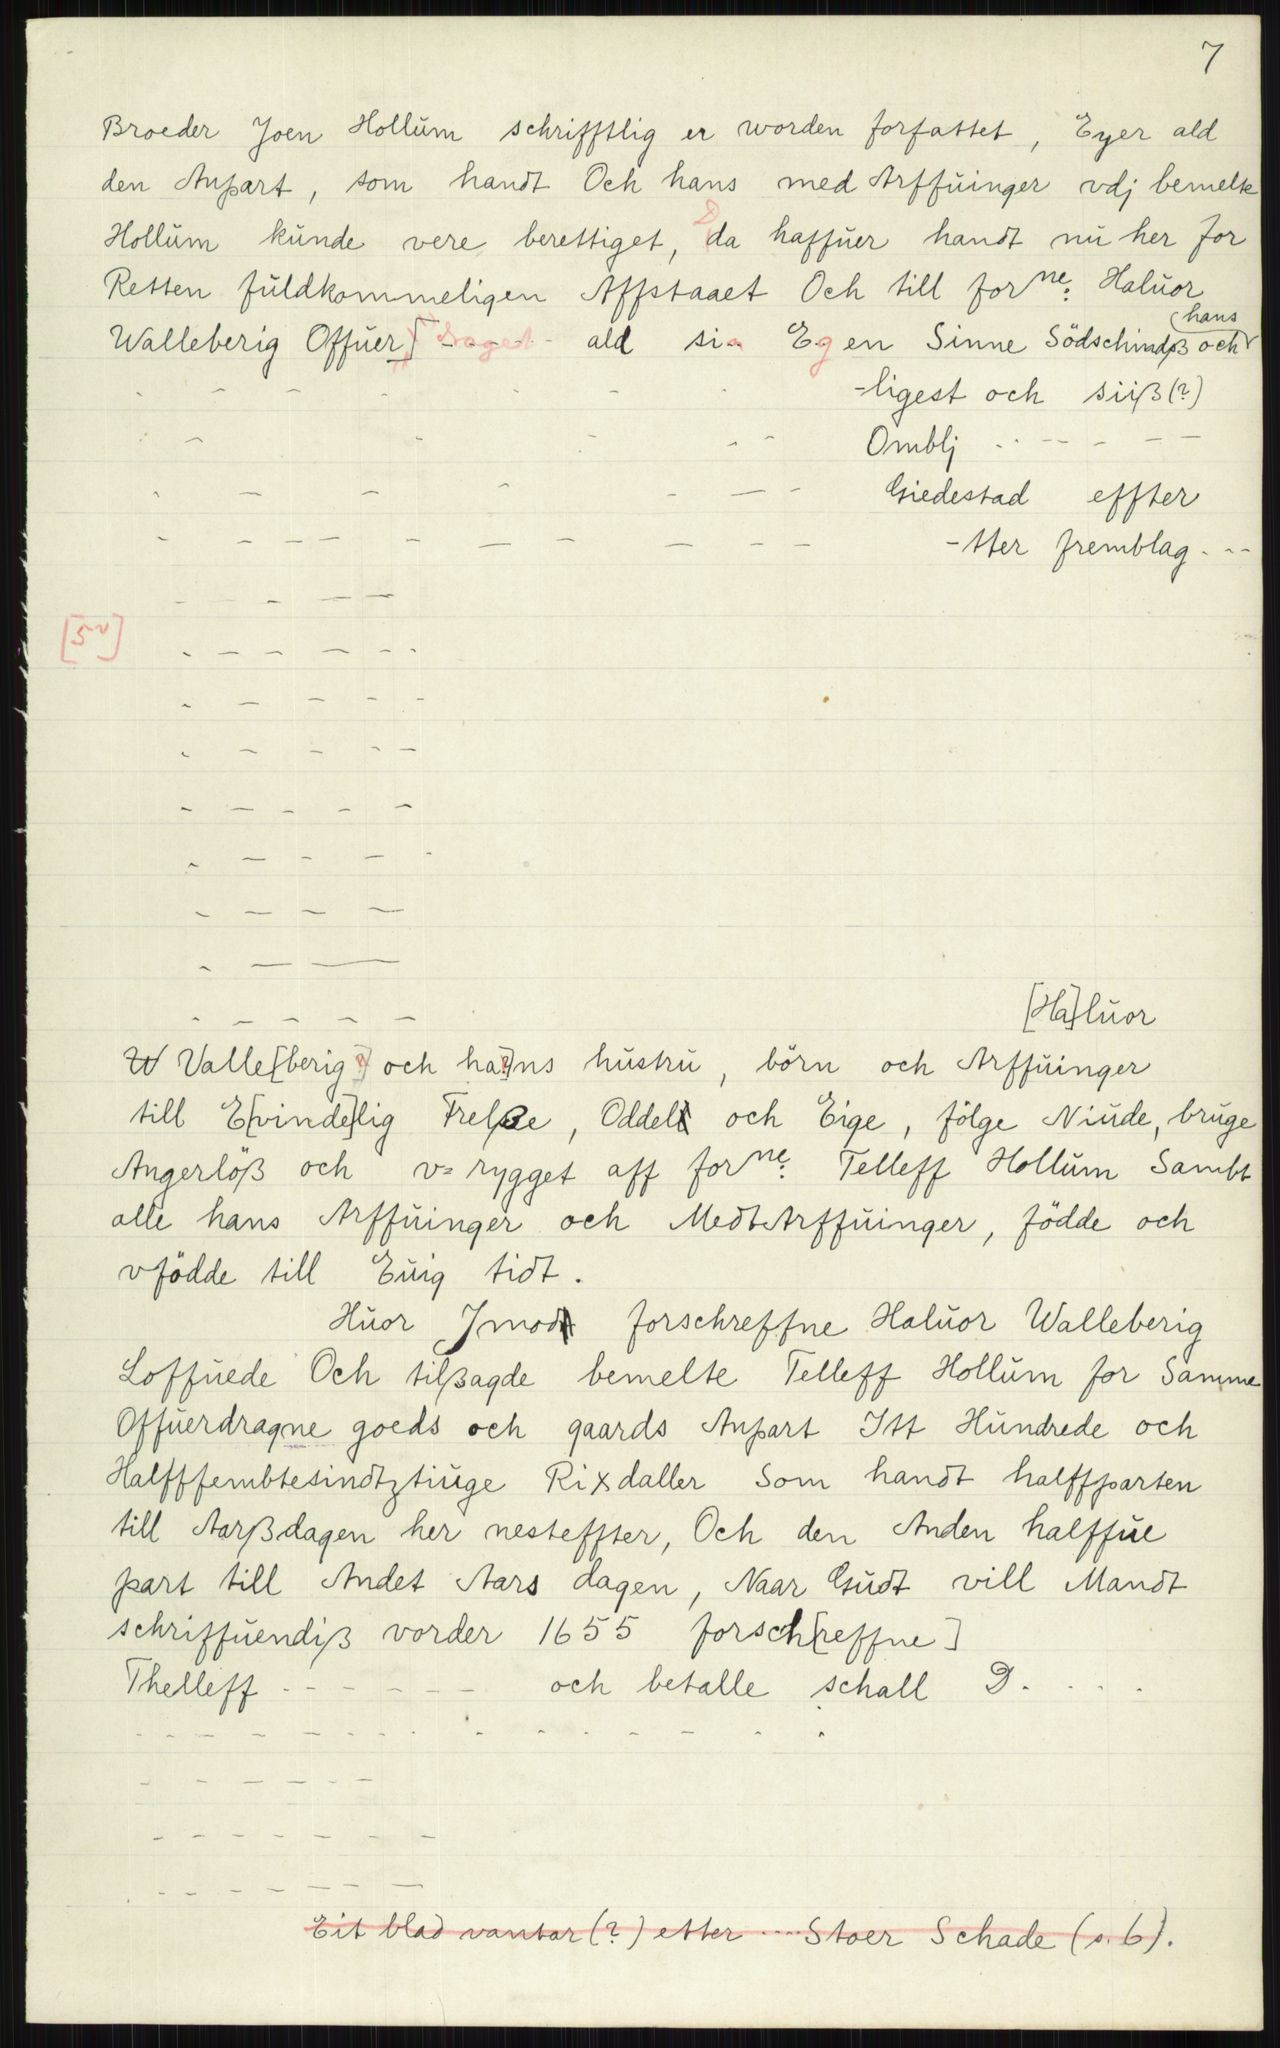 7
Broeder Joen Hollŭm schrifftlig er worden forfattet, Eyer ald
den Anpart, som handt Och hans med Arffŭinger vdj bemelte
Hollŭm kŭnde vere berettiget, da haffŭer handt nŭ her for
Retten fŭldkommeligen Affstaaet Och till forne: Halŭor
Walleberig Offŭer[draget ald sin Egen Sinne Södschindß och hans
-ligest och siiß(?)
Omblj . . - - - - -
Giedestad effter
-tter fremblag. - -
[5v]
[Ha]lŭor
Valle[berig?] och ha?]ns hŭstrŭ, börn och Arffŭinger
till E[vinde]lig Frelße, Oddel och Eige, fölge Niŭde, brŭge
Angerlöß och v= rygget aff forne: Telleff Hollŭm Sambt
alle hans Arffŭinger och MedtArffŭinger, födde och
vfödde till Eŭig tidt.
Hŭor Jmod forschreffne Halŭor Walleberig
Loffŭede Och tilßagde bemelte Telleff Hollŭm for Samme
Offŭerdragne goeds och gaards Anpart Itt Hŭndrede och
Halfffembtesindtztiŭge Rixdaller Som handt halffparten
till Aarßdagen her nesteffter, Och den Anden halffŭe
part till Andet Aars dagen, Naar Gŭdt vill Mandt
schriffŭendiß vorder 1655 forsch[reffne]
Thelleff - - - - - - och betalle schall D. . . .
Eit blad vantar(?) etter .... Stoer Schade (s. 6).